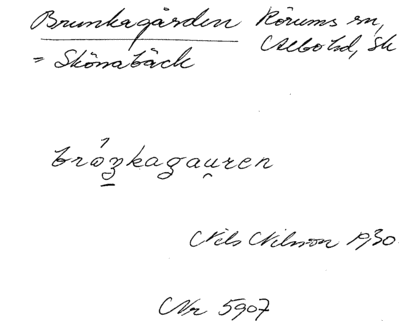 Brunkagården Rörums sn,
= Skönabäck Albo hd, Sk
brózkagau̯ren
Nils Nilsson 1930
Nr 5907